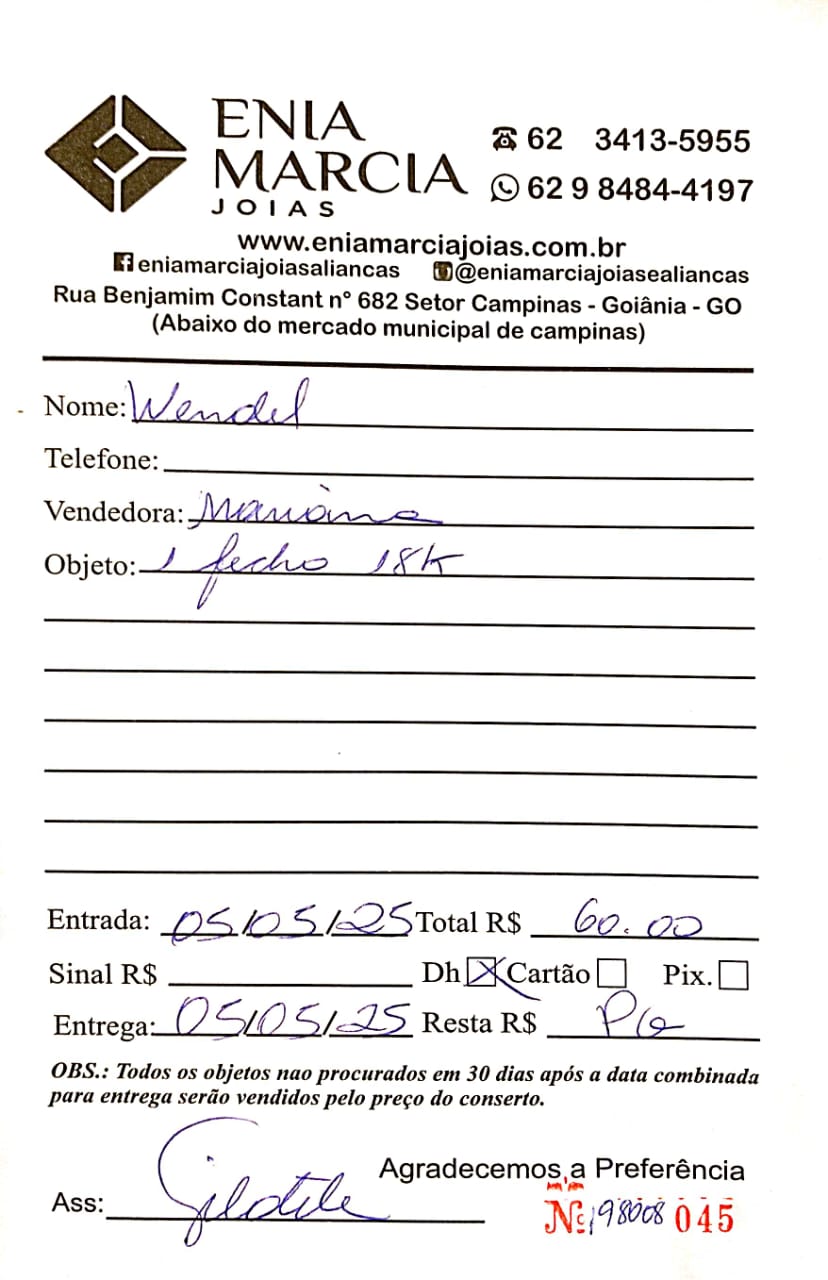 ENIA
MARCIA
JOIAS
62 3413-5955
62 9 8484-4197
www.eniamarciajoias.com.br
eniamarciajoiasaliancas @eniamarciajoiasealiancas
Rua Benjamim Constant n° 682 Setor Campinas - Goiânia - GO
(Abaixo do mercado municipal de campinas)
Nome: Wendel
Telefone:
Vendedora: Mariana
Objeto: 1 fecho 18K
Entrada: 05/05/25 Total R$ 60.00
Sinal R$ Dh X Cartão Pix.
Entrega: 05/05/25 Resta R$ PG
OBS.: Todos os objetos nao procurados em 30 dias após a data combinada
para entrega serão vendidos pelo preço do conserto.
Agradecemos a Preferência
Ass:
Nº 98008 045